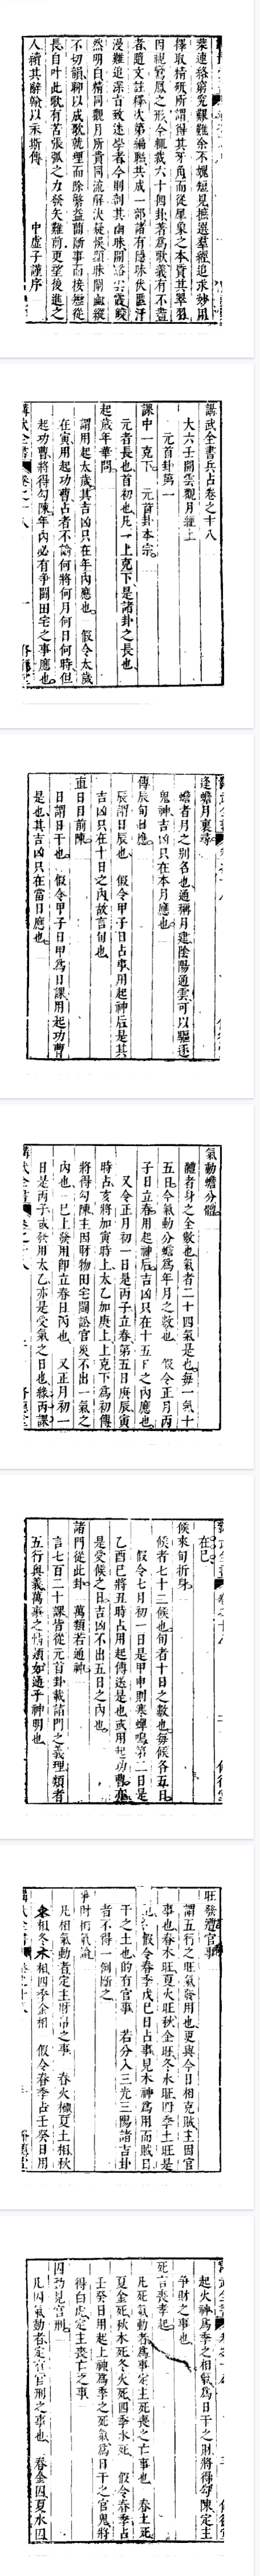 擇取精殊所謂得其牙角而從星象之本貴其翠羽
因視鸞鳳之形今輒裁六十四卦著為歌義有不盡
者題文註釋次第編聯共成一部諸有隱昧伏匿汗
然明白精同觀月所貴同流解決疑候題昧開幽縱
不切韻聊以成歌就理而除繁益蘭斷事而接無從
長自叶此歌有苦張弧之力發矢難前更望後進之
人續其辭翰以永斯傳　中虛子謹序
講武全書兵占卷之十八
大六壬開雲觀月經上
元首卦第一
課中一克下　元首卦本宗
元者長也首初也凡一上克下是諸卦之長也
起歲年華問
謂用起太歲其吉凶只在年內應也　假令太歲
在寅用起功曹占者不論何將何月何日何時但
起功曹將得勾陳年內必有爭鬪田宅之事應也
逢蟾月裏尋
蟾者月之別名也通稱月建陰陽通雲可以驅逐
鬼神吉凶只在本月應也
傳辰旬日應
辰謂日辰也　假令甲子日占事用起神后是其
吉凶只在十日之內故言旬也
直日目前陳
日謂日干也　假令甲子日甲為日課用起功曹
是也其吉凶只在當日應也
氣動蟾分體
體者身之全數也氣者二十四氣是也每一氣十
五日今氣動分蟾為年月之數也　假令正月丙
子日立春用起神后吉凶只在十五下之內應也
又令正月初一日是丙子立春第五日庚辰寅
時占亥將加寅時上太乙加庚上上克下為初傳
將得勾陳主因財物田宅鬪訟官災不出一氣之
內也　巳上發用卽立春日丙也　又正月初一
日是丙子或發用太乙亦是受氣之日也緣丙課
在巳
候來旬折身
候者七十二候也旬者十日之數也每候各五日
假令七月初一日是甲申則寒蟬鳴第二日是
乙酉巳將丑時占用起傳送是也或用起功曹亦
是受候之日吉凶不出五日之內也
諸門從此卦　萬類若通神
言七百二十課皆從元首卦載諸門之義理類者
五行與義萬事之情須如通乎神明也
旺發殭官事
謂五行之旺氣發用也更與今日相克賊主因官
事也春木旺夏火旺秋金旺冬水旺四季土旺是
也　假令春季戊巳日占事見木神為用而賊日
干之土也的有官事　若分入三光三陽諸吉卦
者不得一例斷之
爭財相氣論
凡相氣動者定主財帛之事　春火相夏土相秋
水相冬木相四季金相　假令春季占壬癸日用
起火神為季之相氣為日干之財將得勾陳定主
爭財之事也
死言喪孝起
凡死氣動者為事定主死喪之亡事也　春土死
夏金死秋木死冬火死四季水死　假令春季占
壬癸日用起土神為季之死氣為日干之官鬼將
得白虎定主喪亡之事
囚動見官刑
凡囚氣動者定主官刑之事也　春金囚夏水囚